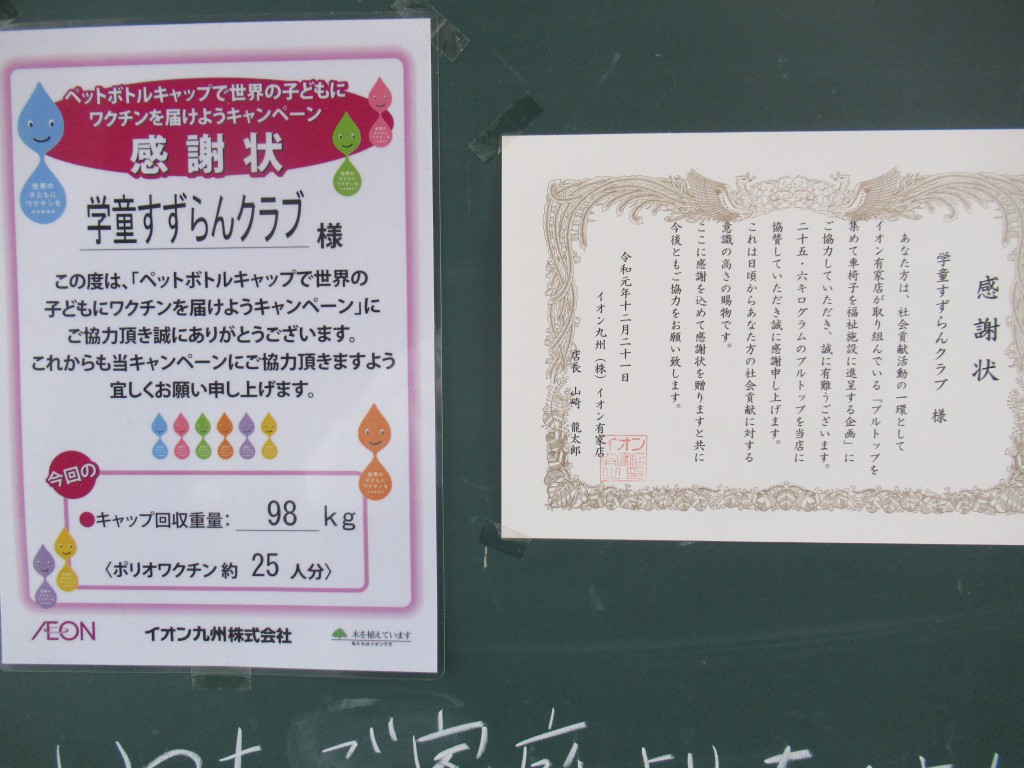 ペットボトルキャップで世界の子どもに
ワクチンを届けようキャンペーン
感謝状
世界の
子どもに
ワクチンを
学童すずらんクラブ 様
この度は、「ペットボトルキャップで世界の
子どもにワクチンを届けようキャンペーン」に
ご協力頂き誠にありがとうございます。
これからも当キャンペーンにご協力頂きますよう
宜しくお願い申し上げます。
世界の
子どもに
ワクチンを
今回の
●キャップ回収重量: 98 kg
〈ポリオワクチン 約 25 人分〉
AEON
イオン九州株式会社
木を植えています
私たちはイオンです
感謝状
学童すずらんクラブ 様
あなた方は、社会貢献活動の一環として
イオン有家店が取り組んでいる「プルトップを
集めて車椅子を福祉施設に進呈する企画」に
ご協力していただき、誠に有難うございます。
二十五・六キログラムのプルトップを当店に
協賛していただき誠に感謝申し上げます。
これは日頃からあなた方の社会貢献に対する
意識の高さの賜物です。
ここに感謝を込めて感謝状を贈りますと共に
今後ともご協力をお願い致します。
令和元年十二月二十一日
イオン九州(株)イオン有家店
店長 山崎 龍太郎
イオン
いつもご家庭より